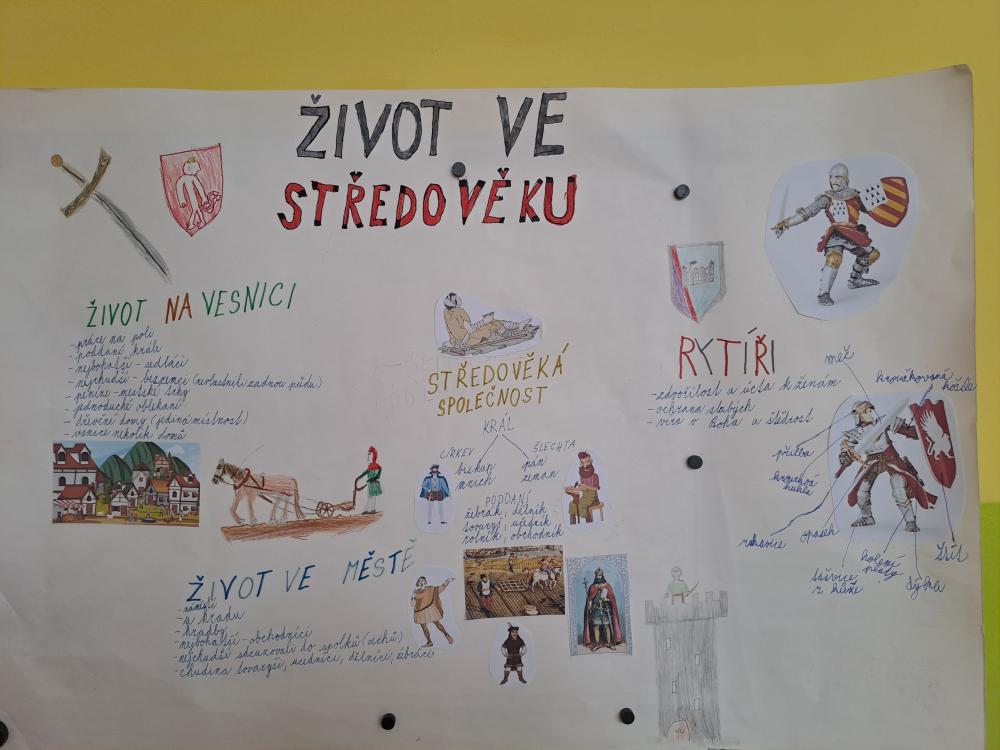 ŽIVOT VE
STŘEDOVĚKU
ŽIVOT NA VESNICI
-práce na poli
-poddaní krále
-nejbohatší - sedláci
-nejchudší - bezzemci (nevlastnili žádnou půdu)
-peníze - městské trhy
-jednoduché oblékání
-dřevění domy (jediná místnost)
-vsnice několik domů
ŽIVOT VE MĚSTĚ
-náměstí
-u hradu
-hradby
-nejbohatší - obchodníci
-nejchudší sdružovali do spolků (cechů)
-chudina tovaryši, učedníci, dělníci, žebráci
STŘEDOVĚKÁ
SPOLEČNOST
KRÁL
CÍRKEV
biskup
mnich
ŠLECHTA
pán
zeman
PODDANÍ
žebrák, dělník
tovaryš, učedník
rolník, obchodník
RYTÍŘI
-zdvořilost a úcta k ženám
-ochrana slabých
-víra v Boha a štědrost
meč
kroužkovaná košile
přilba
kroužková
kukla
rukavice
opasek
šavice
z kůže
holení
pláty
dýka
štít